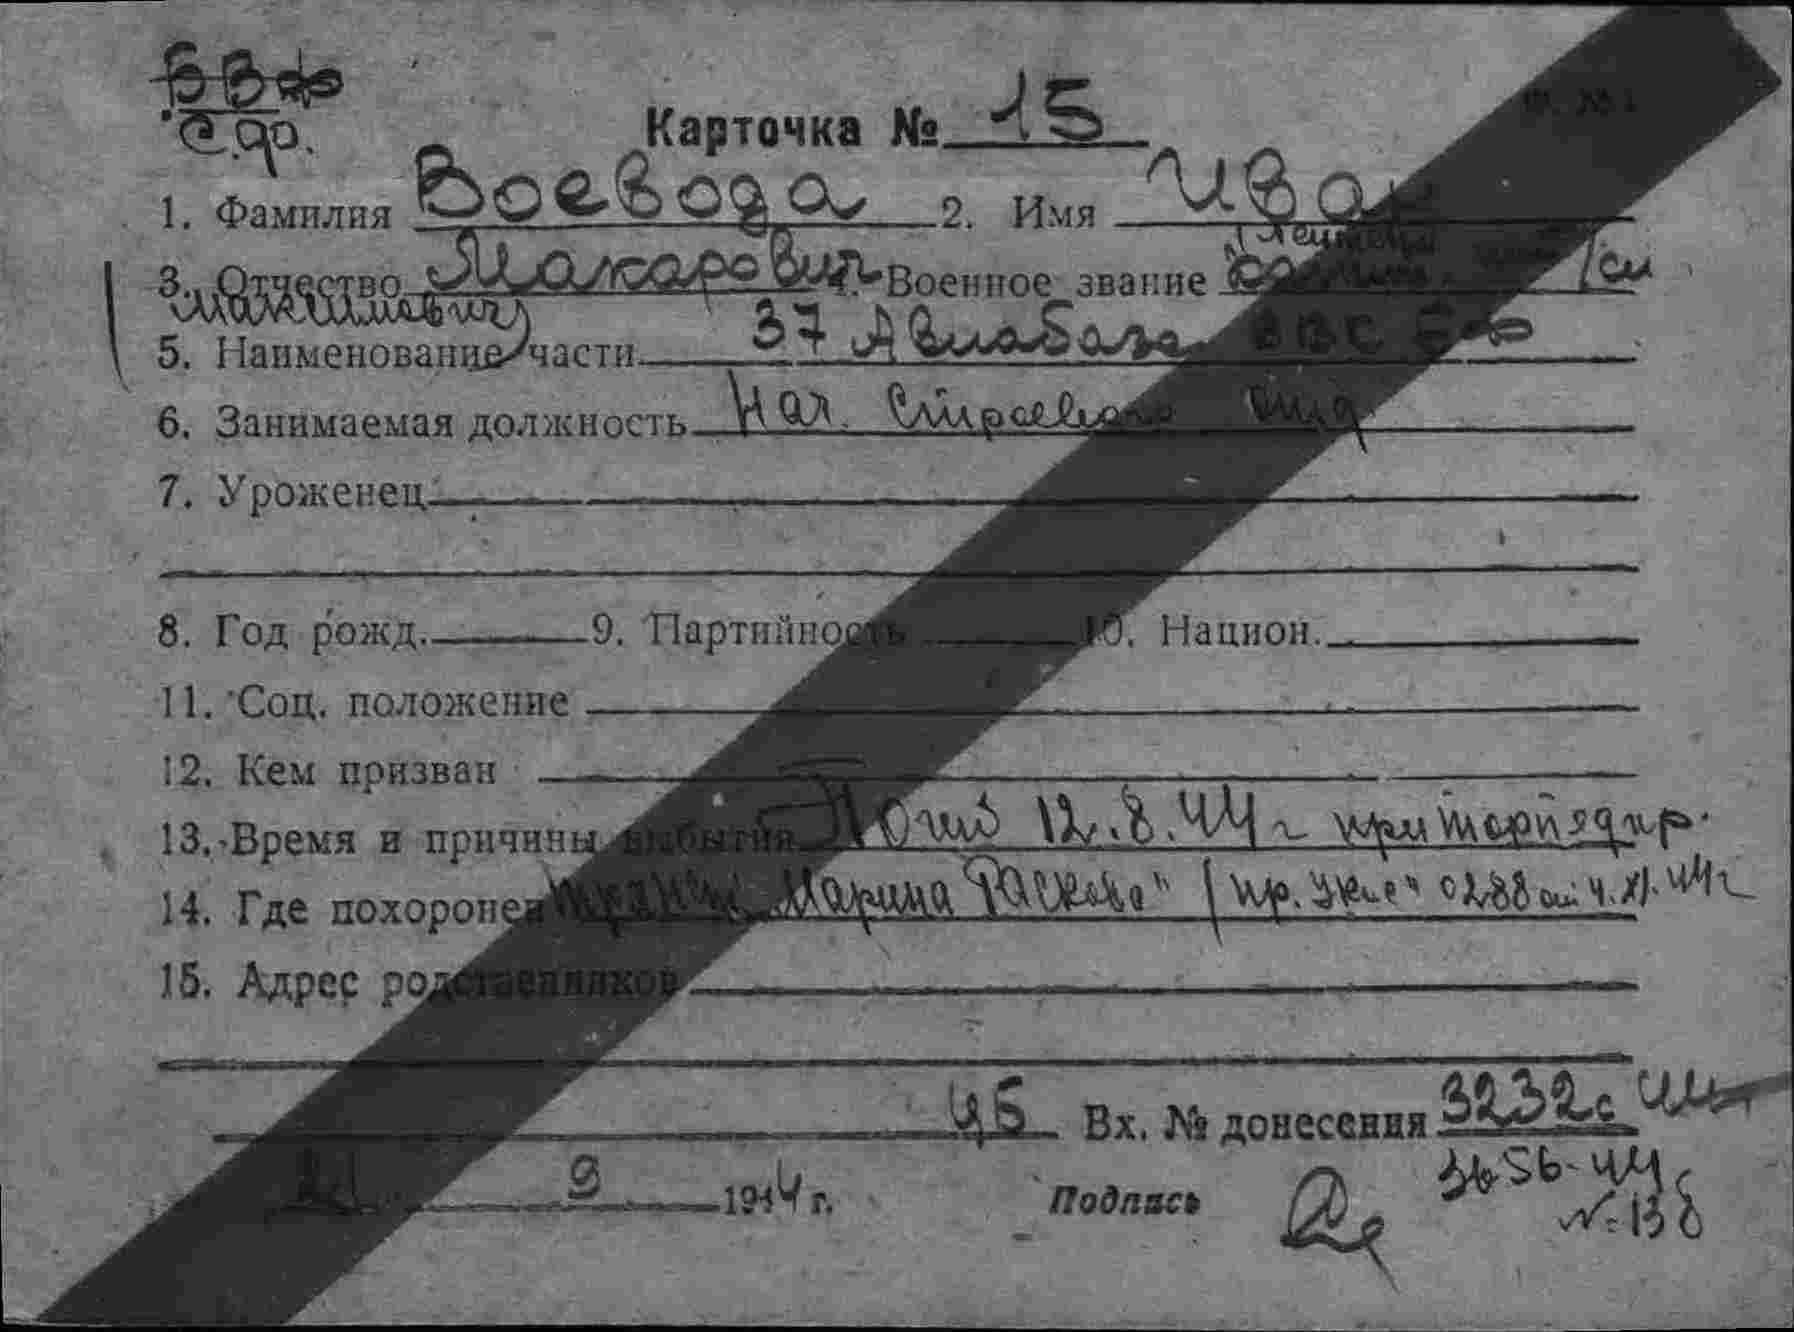 БВФ
С.ф.
Карточка № 15
1. Фамилия Воевода 2. Имя Иван
3. Отчество Макарович 4. Военное звание
Максимович)
5. Наименование части 37 Авиабаза ВВС БФ
6. Занимаемая должность Нач. Строевого отд
7. Уроженец
8. Год рожд. 9. Партийность 10. Национ.
11. Соц. положение
12. Кем призван
13. Время и причины выбытия Погиб 12.8.44 г при торпедир.
14. Где похоронен "Марина Раскова" /пр. 0288 от 4.XI.44г
15. Адрес родственников
ЦБ Вх. № донесения 3232с
9 1944 г. Подпись
3656-44
№138